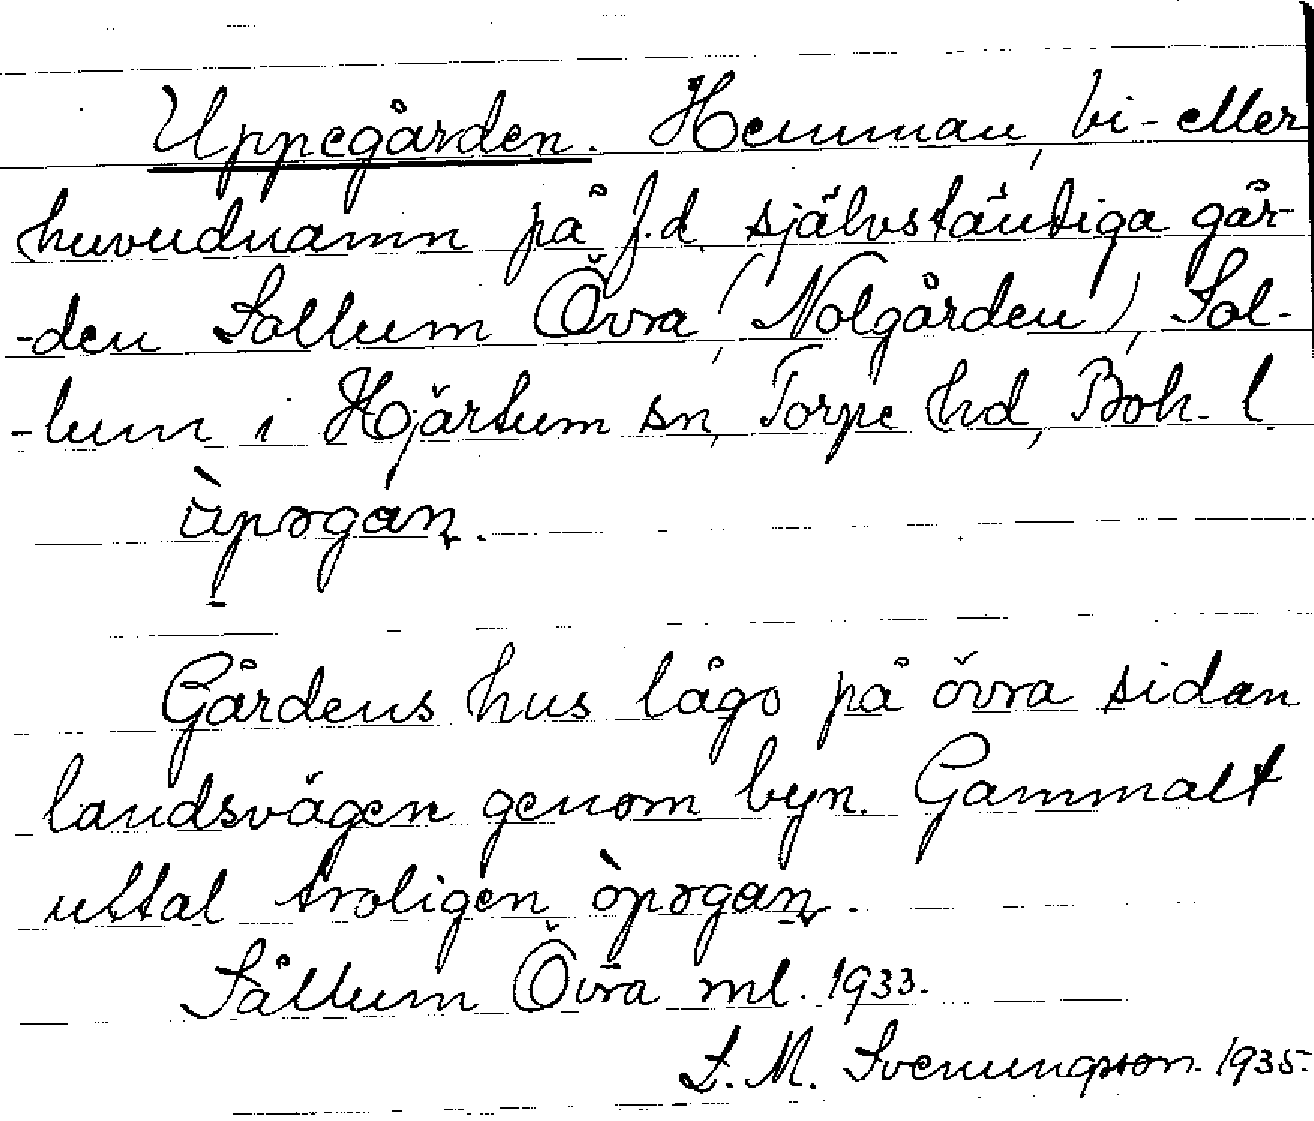 Uppegården. Hemman, bi- eller
huvudnamn på f.d. självständiga går-
-den Sollum Övra (Nolgården), Sol-
-lum i Hjärtum sn, Torpe hd, Boh. l.
ùpəgan̥.
Gårdens hus lågo på övra sidan
landsvägen genom byn. Gammalt
uttal troligen òpəgan̥.
Sållum Övra ml. 1933.
L. M. Svenungsson. 1935.